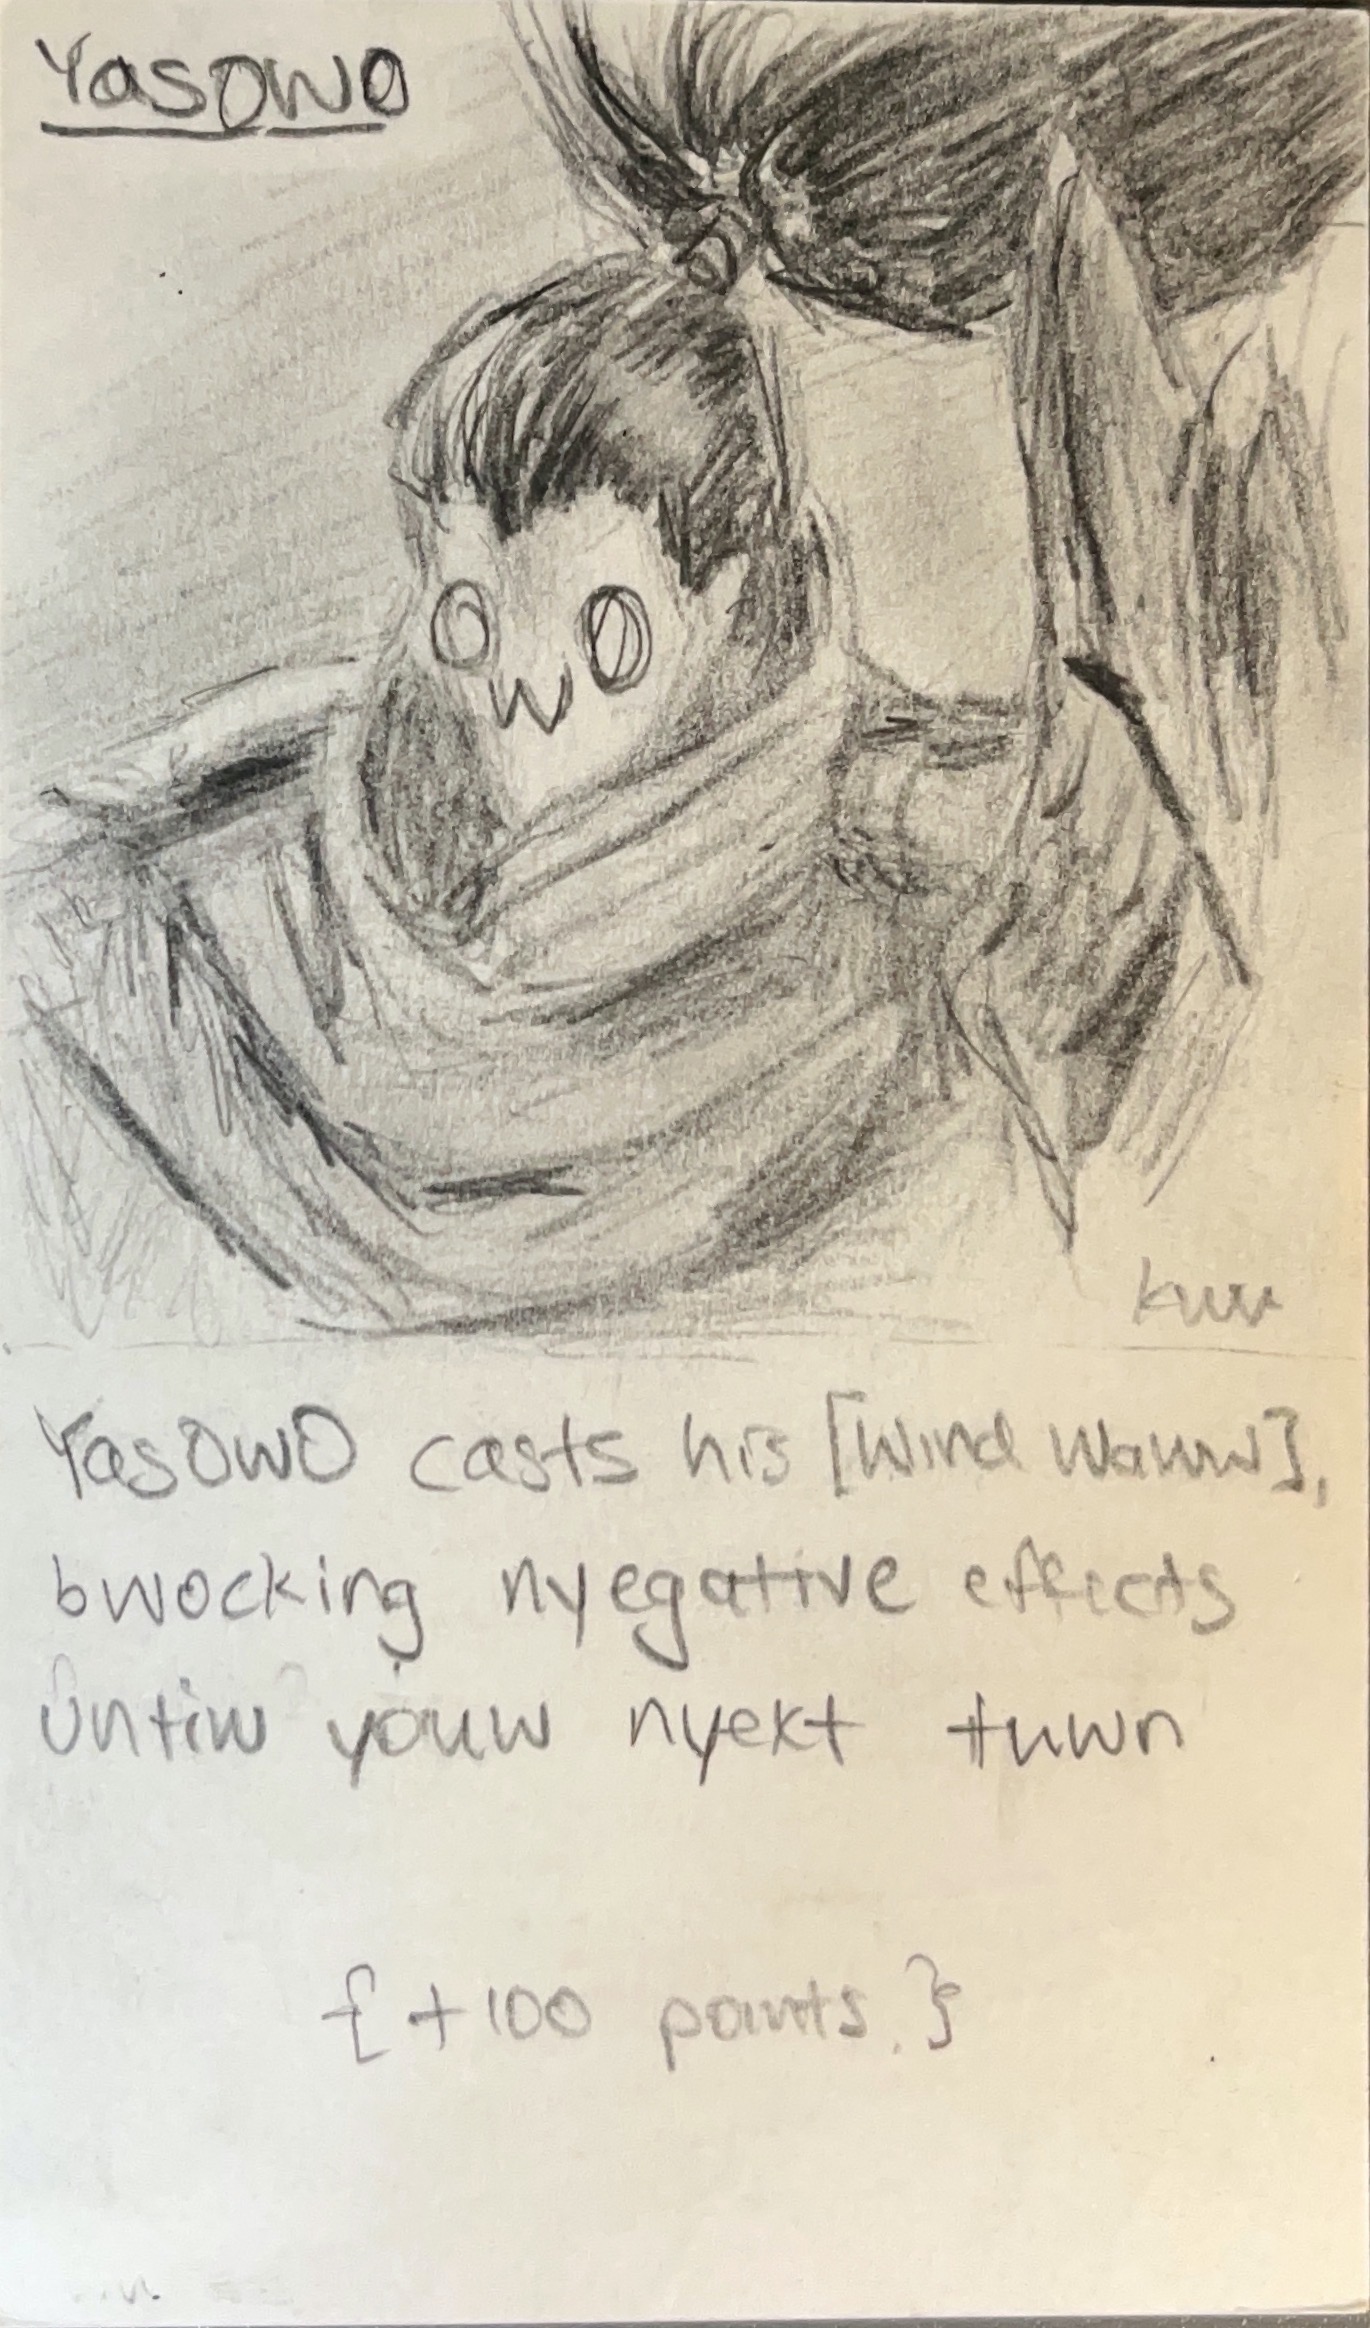 YasOwO
OwO
kuu
YasOwO casts his [Wind Wauw],
bwocking nyegative effects
Untiw youw nyext tuwn
{+100 points.}